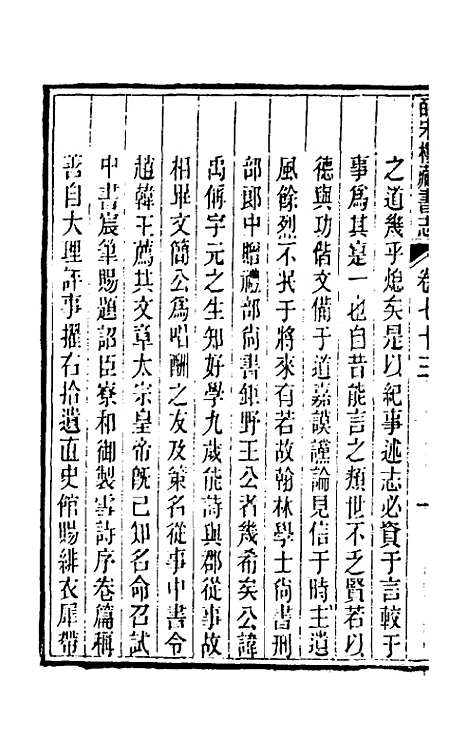 皕宋樓藏書志 卷七十三 一
之道幾乎熄矣是以紀事述志必資于言較于
事爲其寔一也自昔能言之類世不乏賢若以
德與功偕文備于道嘉謨讜論見信于時主遺
風餘烈不泯于將來有若故翰林學士尚書刑
部郎中贈禮部尚書鉅野王公者幾希矣公諱
禹偁字元之生知好學九歲能詩與郡從事故
相畢文簡公爲唱酬之友及策名從事中書令
趙韓王薦其文章太宗皇帝旣已知名命召試
中書宸筆賜題詔臣寮和御製雪詩序卷篇稱
善自大理評事擢右拾遺直史館賜緋衣犀帶